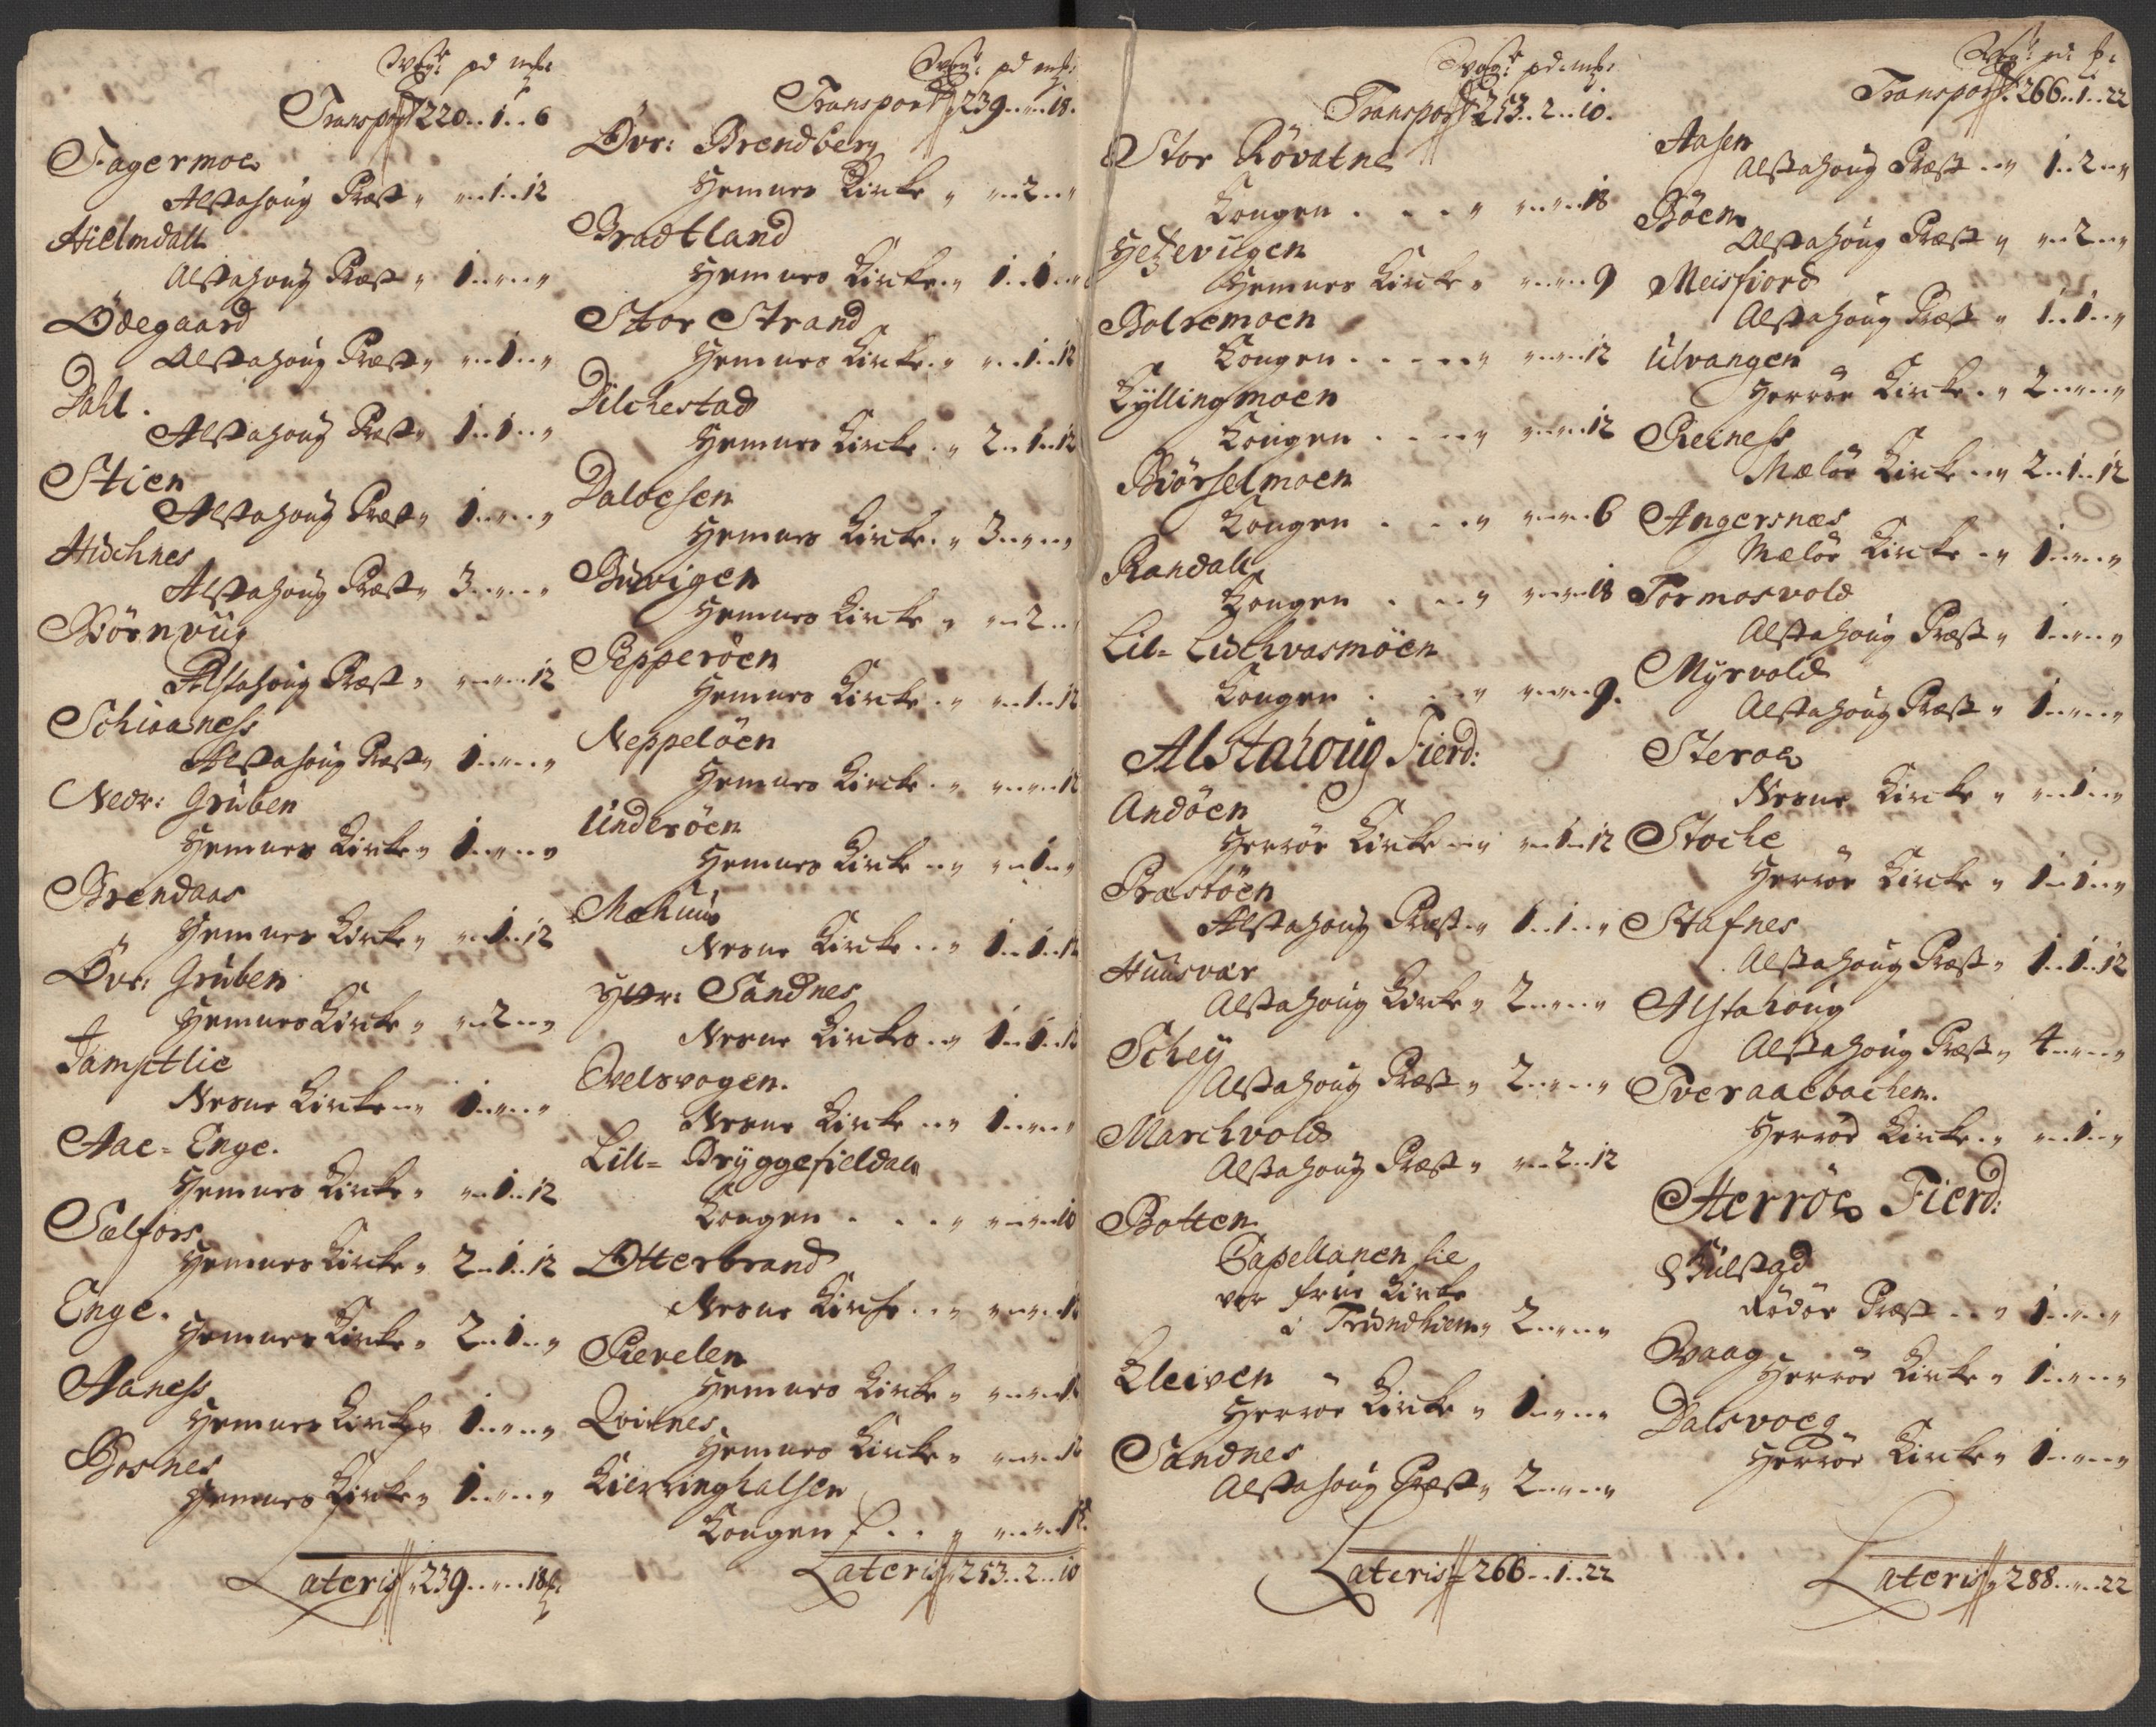 Wog: pd mk:
Transport 220..1..6
Fagermoe
Alstahoug Præst " "..1..12
Hielmdall
Alstahoug Præst " 1..".."
Ödegaard
Alstahoug Præst " "..1.."
Dahl.
Alstahoug Præst " 1..1.."
Stien
Alstahoug Præst " 1..".."
Hiochnes
Alstahoug Præst " 3..".."
Biörnvüg
Alstahoug Præst " "..".12
Schioaness
Alstahoug Præst " 1..".."
Nedr: Grüben
Hemnes Kirke " 1..".."
Brendaas
Hemnes Kirke " "..1..12
Övr: Grüben
Hemnes Kirke " "..2.."
Jamptlie
Nesne Kirke " 1..".."
Aae= Enge.
Hemnes Kirke " "..1..12
Sælfors
Hemnes Kirke " 2..1..12
Enge.
Hemnes Kirke " 2..1.."
Aaness
Hemnes Kirke " 1..".."
Bosnes
Hemnes Kirke " 1..".."
Lateris 239.."..18
Wog: pd mk:
Transport 239.."..18.
Övr: Brendberg
Hemnes Kirke " "..2.."
Bradtland
Hemnes Kirke " 1..1.."
Stor Strand
Hemnes Kirke " "..1..12
Dilchestad
Hemnes Kirke " 2..1..12
Daloesen
Hemnes Kirke " 3..".."
Buvigen
Hemnes Kirke " "..2.."
Pepperöen
Hemnes Kirke " "..1..12
Neppelöen
Hemnes Kirke " ".."..12
Underöen
Hemnes Kirke " "..1.."
Mæhuus
Nesne Kirke " 1..1..12
Yttr: Sandnes
Nesne Kirke " 1..1..12
Qvelsvogen.
Nesne Kirke " 1..".."
Lill= Bryggefieldal
Kongen . . . " ".."..10
Otterbrand
Nesne Kirke
Pievelen
Hemnes Kirke
Qvitnes
Hemnes Kirke
Kierringhalsen
Kongen
Lateris 253..2..10
Wog: pd: mk:
Transport 253..2..10.
Stor Rövatne
Kongen . . . " ".."..18
Hetzevügen
Hemnes Kirke " ".."..9
Bolremoen
Kongen . . . . " ".."..12
Kyllingmoen
Kongen . . . " ".."..12
Biörselmoen
Kongen . . . " ".."..6
Randal
Kongen . . . " ".."..18
Lil= Lidthvasmöen
Kongen . . . " ".."..9.
Alstahoug Fierd:
Andöen
Herröe Kirke " "..1..12
Præstöen
Alstahoug Præst " 1..1.."
Huusvær
Alstahoug Kirke " 2..".."
Schey
Alstahoug Præst " 2..".."
Marchvold
Alstahoug Præst " "..2..12
Botten
Capellanen til
vor frue Kirke
i Trundhiem " 2..".."
Kleiven
Herröe Kirke " 1..".."
Sandnes
Alstahoug Præst " 2..".."
Lateris 266..1..22
Transport 266..1..22
Aasen
Alstahoug Præst " 1..2.."
Böen
Alstahoug Præst " "..2.."
Meisfiord
Alstahoug Præst " 1..1.."
Ulvangen
Herröe Kirke " 2..".."
Reiness
Mælöe Kirke " 2..1..12
Angersnæs
Mælöe Kirke " 1..".."
Tormosvold
Alstahoug Præst " 1..".."
Myrvold
Alstahoug Præst " 1..".."
Steroe
Nesne Kirke " "..1.."
Stoche
Herröe Kirke " 1..1.."
Stafnes
Alstahoug Præst " 1..1..12
Alstahoug
Alstahoug Præst " 4..".."
Tveraaebachen.
Herröe Kirke " "..1.."
Herröe Fierd:
Skulstad
Rödöe Præst " 1..".."
Qvaag
Herröe Kirke " 1..".."
Dalsvoeg
Herröe Kirke " 1..".."
Lateris 288.."..22